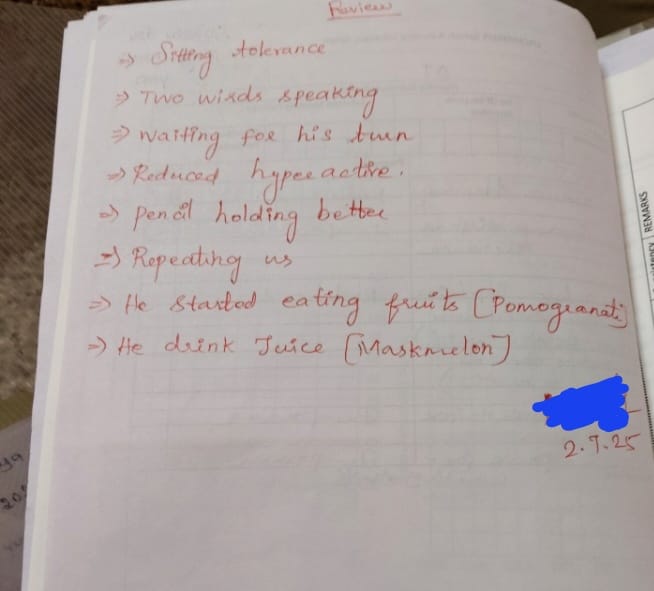 Review
⇒ Sitting tolerance
⇒ Two wirds speaking
⇒ waiting for his turn
⇒ Reduced hyper active.
⇒ pencil holding better
⇒ Repeating us
⇒ He started eating fruits [Pomogranate]
⇒ He drink Juice [Maskmelon]
2.7.25
REMARKS